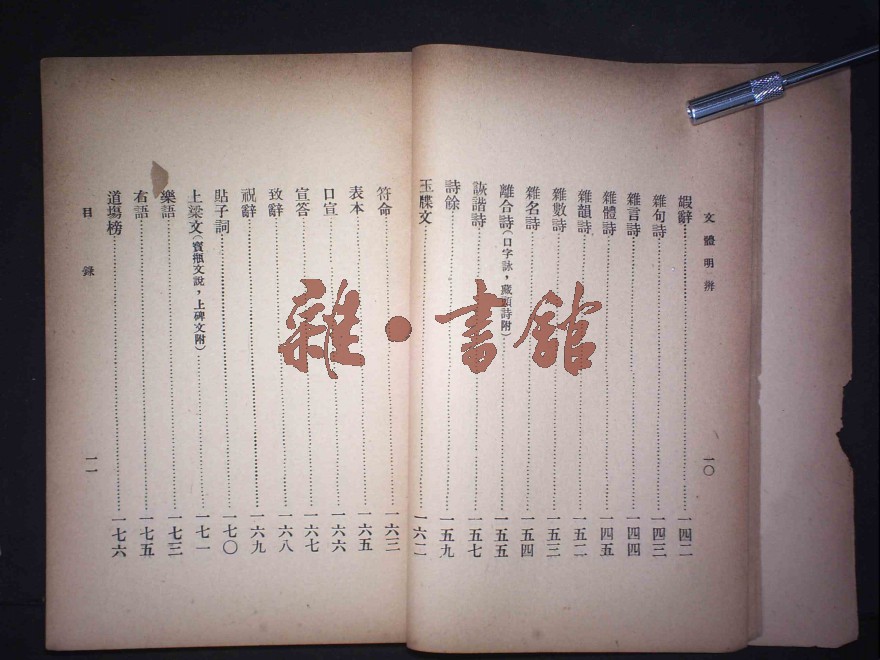 文體明辨
嘏辭……一四二
雜句詩……一四三
雜言詩……一四四
雜體詩……一四五
雜韻詩……一五二
雜數詩……一五三
雜名詩……一五四
離合詩(口字詠，藏頭詩附)……一五五
詼諧詩……一五七
詩餘……一五九
玉牒文……一六二
一〇
符命……一六三
表本……一六五
口宣……一六六
宣答……一六七
致辭……一六八
祝辭……一六九
貼子詞……一七〇
上梁文(寶瓶文說，上碑文附)……一七一
樂語……一七三
右語……一七五
道場榜……一七六
目錄
一一
雜·書館